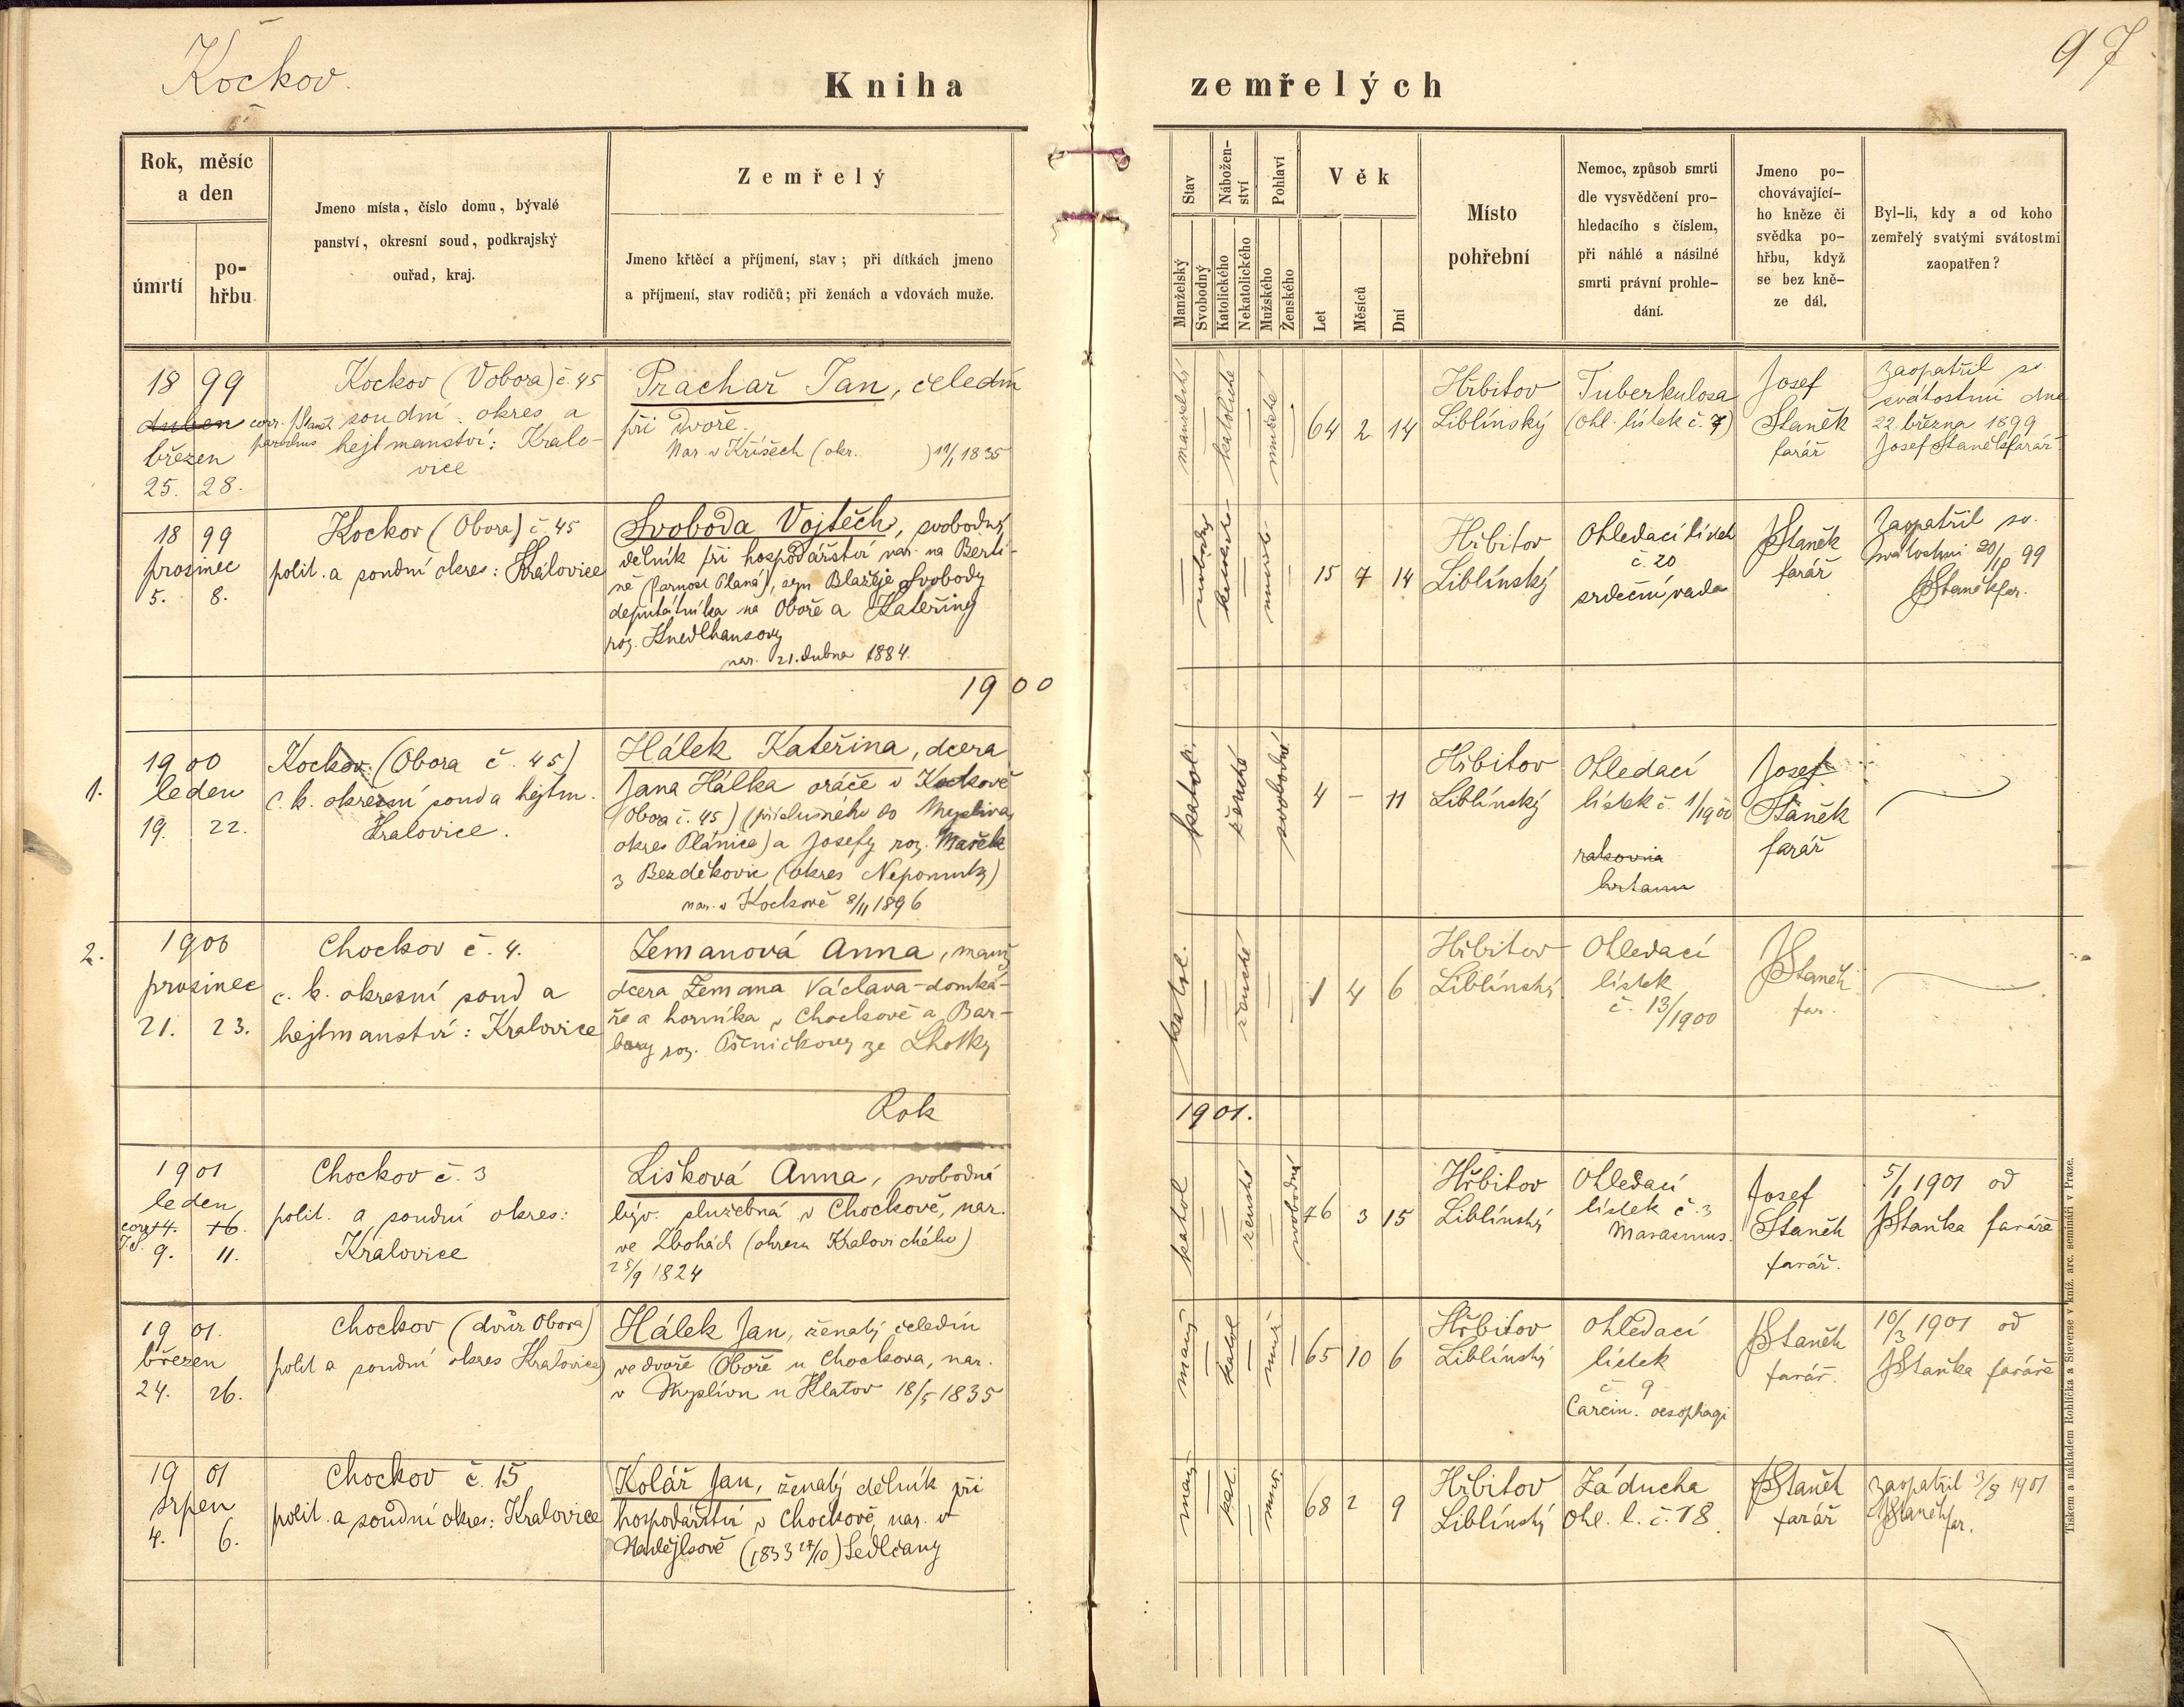 Kočkov.
97
Kniha
zemřelých
Rok, měsíc
a den
úmrtí
po-
hřbu
Jmeno místa, číslo domu, bývalé
panství, okresní soud, podkrajský
ouřad, kraj.
Zemřelý
Jmeno křtěcí a příjmení, stav; při dítkách jmeno
a příjmení, stav rodičů; při ženách a vdovách muže.
Stav
Manželský
Svobodný
Nábožen-
ství
Katolického
Nekatolického
Pohlaví
Mužského
Ženského
Věk
Let
Měsíců
Dní
Místo
pohřební
Nemoc, způsob smrti
dle vysvědčení pro-
hledacího s číslem,
při náhlé a násilné
smrti právní prohle-
dání.
Jmeno po-
chovávající-
ho kněze či
svědka po-
hřbu, když
se bez kně-
ze dál.
Byl-li, kdy a od koho
zemřelý svatými svátostmi
zaopatřen?
1899
duben
březen
25. 28.
Kockov (Vobora) č. 45
soudní okres a
hejtmanství: Kralo-
vice
Prachař Jan, čeledín
při dvoře.
Nar. v Křišech (okr. ) 11/1 1835
manželské
katolické
mužské
64 2 14
Hřbitov
Liblínský
Tuberkulosa
(ohl. lístek č. 7)
Josef
Staněk
farář
zaopatřil sv.
svátostmi dne
22. března 1899
Josef Staněk farář
1899
prosinec
5. 8.
Kockov (Obora) č 45
polit. a soudní okres: Kralovice
Svoboda Vojtěch, svobodný
dělník při hospodářství nar. na Berti-
ně (farnost Planá), syn Blažeje Svobody
deputátníka na Oboře a Kateřiny
roz. Knedlhansovy
nar. 21. dubna 1884.
svobodný
15 7 14
Hřbitov
Liblínský
Ohledací lístek
č. 20
srdeční vada
JStaněk
farář
Zaopatřil sv.
svátostmi 99
JStaněk far.
1900
1.
1900
leden
19. 22.
Kockov (Obora č. 45)
c. k. okresní soud a hejtm.
Kralovice.
Hálek Kateřina, dcera
Jana Hálka oráče v Kockově
(Obora č. 45) (příslušného do Myslíva,
okres Plánice) a Josefy roz. Mařek
z Bezděkovic (okres Nepomuky)
nar. v Kockově 8/11 1896
katoli.
ženské
svobodné
4 – 11
Hřbitov
Liblínský
Ohledací
lístek č. 1/1900
rakovina
hrtanu
Josef
Staněk
farář
2.
1900
prosinec
21. 23.
Chockov č. 4.
c. k. okresní soud a
hejtmanství: Kralovice
Zemanová Anna, manž
dcera Zemana Václava – domká-
ře a horníka v Chockově a Bar-
bory roz. ze Lhotky
katol.
ženské
1 4 6
Hřbitov
Liblínský
Ohledací
lístek
č. 13/1900
JStaněk
far.
Rok
1901.
1901
leden
corr. 14. 16.
J.S. 9. 11.
Chockov č. 3
polit. a soudní okres:
Kralovice
Lišková Anna, svobodná
býv. služebná v Chockově, nar.
ve Zbohách (okresu Kralovického)
25/9 1824
katol
ženské
svobodná
76 3 15
Hřbitov
Liblínský
Ohledací
lístek č. 3
Marasmus.
Josef
Staněk
farář.
5/1 1901 od
JStaňka faráře
1901.
březen
24. 26.
Chockov (dvůr Obora)
polit a soudní okres Kralovice)
Hálek Jan, ženatý čeledín
ve dvoře Oboře u Chockova, nar.
v Myslívu u Klatov 18/5 1835
manž
katol
muž.
65 10 6
Hřbitov
Liblínský
ohledací
lístek
č. 9
Carcin. oesophagi
JStaněk
farář.
10/3 1901 od
JStaňka faráře
1901
srpen
4. 6.
Chockov č. 15
polit. a soudní okres: Kralovice
Kolář Jan, ženatý dělník při
hospodářství v Chockově, nar. v
Nadějkově (1833 27/10) Sedlčany
manž
kat.
muž.
68 2 9
Hřbitov
Liblínský
Záducha
Ohl. l. č. 18.
JStaněk
farář
zaopatřil 3/8 1901
JStaněk far.
Tiskem a nákladem Rohlíčka a Sieverse v kníž. arc. semináři v Praze.